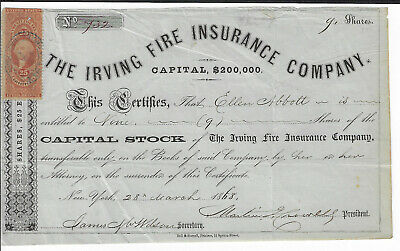 No. 932
9. Shares.
THE IRVING FIRE INSURANCE COMPANY.
CAPITAL, $200,000.
This Certifies, That Ellen Abbott is
entitled to Nine (9) Shares of the
CAPITAL STOCK of The Irving Fire Insurance Company,
transferable only on the Books of said Company by her or her
Attorney, on the surrender of this Certificate.
New York, 28th March 1868.
Secretary.
President.
SHARES, $25 E
25